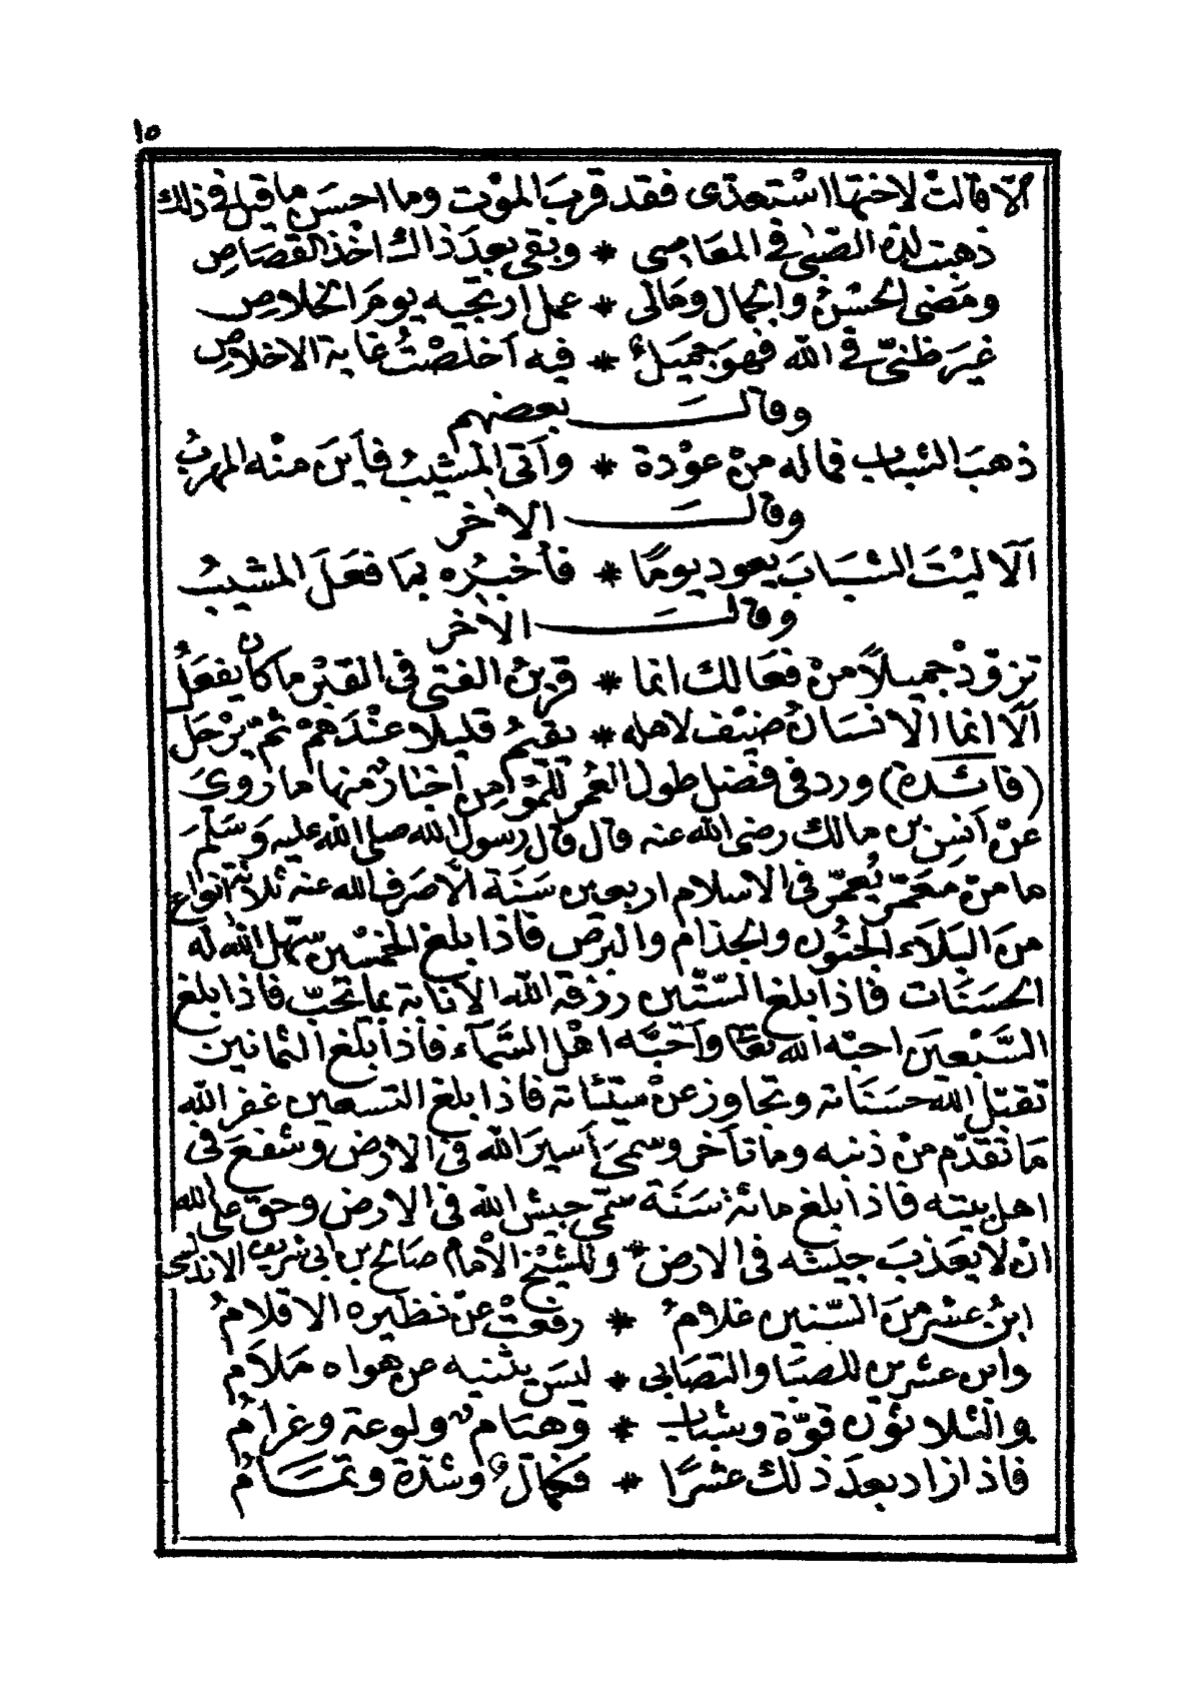 ١٥
الّا قالتْ لاختها استعدّى فقد قربَ الموْت وما احسَن ما قيل فى ذلك
ذهبت لذة الصّبى فى المعَاصِى * وبقى بعدَ ذاك اخْذ القصَاصِ
ومَضى الحسْنُ والجمال ومَالى * عمل ارتجيه يومَ الخلاصِ
غيرَ ظنىّ فى الله فهوَ جميَلٌ * فيه اَخلصْتُ غاية الاخلاصِ
وقالَ بعضهم
ذهبَ الشباب فما له منْ عوْدة * وأتى المشيبُ فأينَ منْه المهربُ
وقالَ الاٰخر
اَلَا ليْتَ الشبَابَ يعود يومًا * فأخبرُه بمَا فعَلَ المشيبُ
وقالَ الاٰخر
تزوّدْ جميلاً منْ فعَالك انما * قرينُ الفتى فى القبْر ما كان يفعَلُ
اَلَا انما الانسَانُ ضيْف لاهله * يقيمُ قليلا عنْدَهمْ ثمّ يرْحَلُ
(فائدة) ورد فى فضْل طول العُمر للمؤْمِن اخبَارٌ منها ما رُوىَ
عنْ اَنسِ بن مالك رضى الله عنه قال قال رسول الله صلى الله عليه وَسَلّمَ
ما منْ معَمّر يُعمّر فى الاسلام اربعين سَنَة الّا صَرف الله عنه ثلاثة انواع
منَ البَلَاء الجنُون والجذام والبرَص فاذا بلغ الخمْسين سهّل الله له
الحسَنَات فاذا بلغ السّتّين رزقه الله الانابة بما يحبّ فاذا بلغ
السَّبْعينَ احبّه الله تعَا وأحَبَّه اهْل السَّمآء فاذا بلغ الثمانين
تقبّل الله حسَنَاته وتجاوز عنْ سيّئاته فاذا بلغ التسعين غفر الله
مَا تقدّم منْ ذنبه وما تأخر وسمىَ أسيرَ الله فى الارض وشفعَ فى
اهل بيته فاذا بلغ مائة سَنَة سمّى حبيسْ الله فى الارض وحق على الله
انْ لا يعَذبَ حبيسَه فى الارض * وللشيْخ الامام صَالح بن ابى شريف الاندلسى
ابنُ عشْر منَ السّنين غلامُ * رفعتْ عنْ نظيره الاقلامُ
وابن عشرين للصبَا والتصَابى * ليسَ يثنيه عن هواه مَلَام
والثلاثون قوّة وشبَاب * وهيَام ولوعة وغرامُ
فاذا زاد بعدَ ذلك عشرًا * فكمالٌ وشدّة وتمَامُ